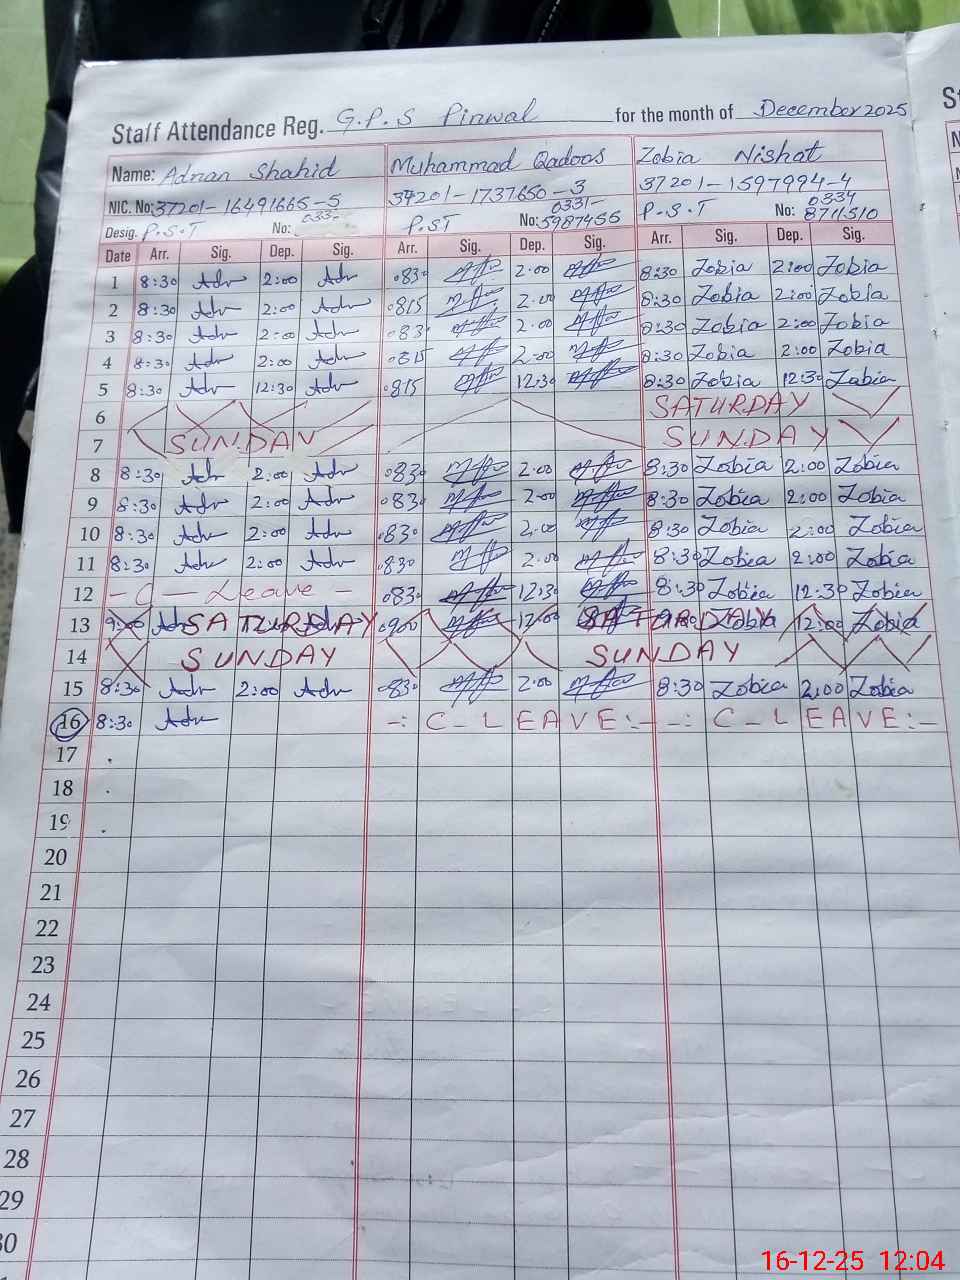 Staff Attendance Reg. G.P.S Pinwal for the month of December 2025
Name: Adnan Shahid Muhammad Qadoos Zobia Nishat
NIC. No: 37201-16491665-5 37201-1737650-3 37201-1597994-4
Desig. P.S.T No: 033- P.ST No: 0331-5987455 P.S.T No: 0334 8711510
Date Arr. Sig. Dep. Sig. Arr. Sig. Dep. Sig. Arr. Sig. Dep. Sig.
1 8:30 Adn 2:00 Adn 0830 2:00 8:30 Zobia 2:00 Zobia
2 8:30 Adn 2:00 Adn 0815 2:00 8:30 Zobia 2:00 Zobia
3 8:30 Adn 2:00 Adn 083 2:00 8:30 Zobia 2:00 Zobia
4 8:30 Adn 2:00 Adn 0815 2:00 8:30 Zobia 2:00 Zobia
5 8:30 Adn 12:30 Adn 0815 12:30 8:30 Zobia 12:30 Zobia
6 SATURDAY
7 SUNDAY SUNDAY
8 8:30 Adn 2:00 Adn 0830 2:00 8:30 Zobia 2:00 Zobia
9 8:30 Adn 2:00 Adn 0830 2:00 8:30 Zobia 2:00 Zobia
10 8:30 Adn 2:00 Adn 0830 2:00 8:30 Zobia 2:00 Zobia
11 8:30 Adn 2:00 Adn 0830 2:00 8:30 Zobia 2:00 Zobia
12 - C - Leave - 0830 12:30 8:30 Zobia 12:30 Zobia
13 9:00 Adn SATURDAY 0900 12:00 SATURDAY Zobia 12:00 Zobia
14 SUNDAY SUNDAY
15 8:30 Adn 2:00 Adn 0830 2:00 8:30 Zobia 2:00 Zobia
16 8:30 Adn -: C - LEAVE:- -: C - LEAVE:-
17
18
19
20
21
22
23
24
25
26
27
28
29
30
16-12-25 12:04